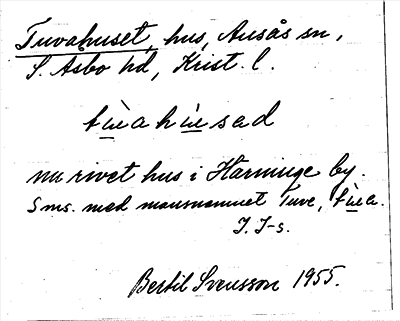 Tuvahuset, hus, Ausås sn,
S. Åsbo hd, Krist. l.
tu̲a hu̲sad
nu rivet hus i Härninge by.
Sms. med mansnamnet Tuve, tu̲a.
I. I-s.
Bertil Svensson 1955.